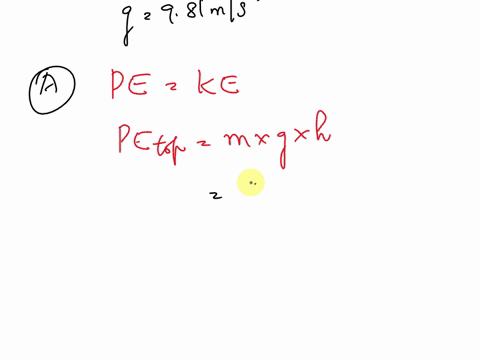 g = 9.81 m/s
A PE = KE
PE top = m × g × h
=